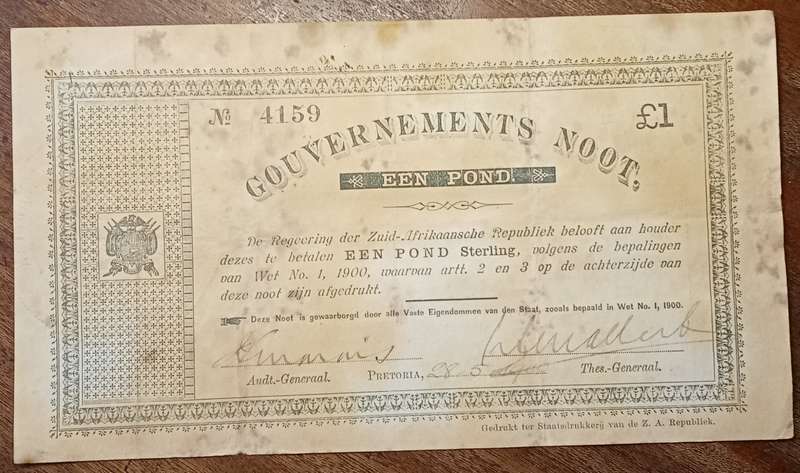 № 4159 £1
GOUVERNEMENTS NOOT,
EEN POND.
De Regeering der Zuid-Afrikaansche Republiek belooft aan houder
dezes te betalen EEN POND Sterling, volgens de bepalingen
van Wet No. 1, 1900, waarvan artt. 2 en 3 op de achterzijde van
deze noot zijn afgedrukt.
Deze Noot is gewaarborgd door alle Vaste Eigendommen van den Staat, zooals bepaald in Wet No. 1, 1900.
Audt.-Generaal. PRETORIA, 28-5 Thes.-Generaal.
Gedrukt ter Staatsdrukkerij van de Z. A. Republiek.